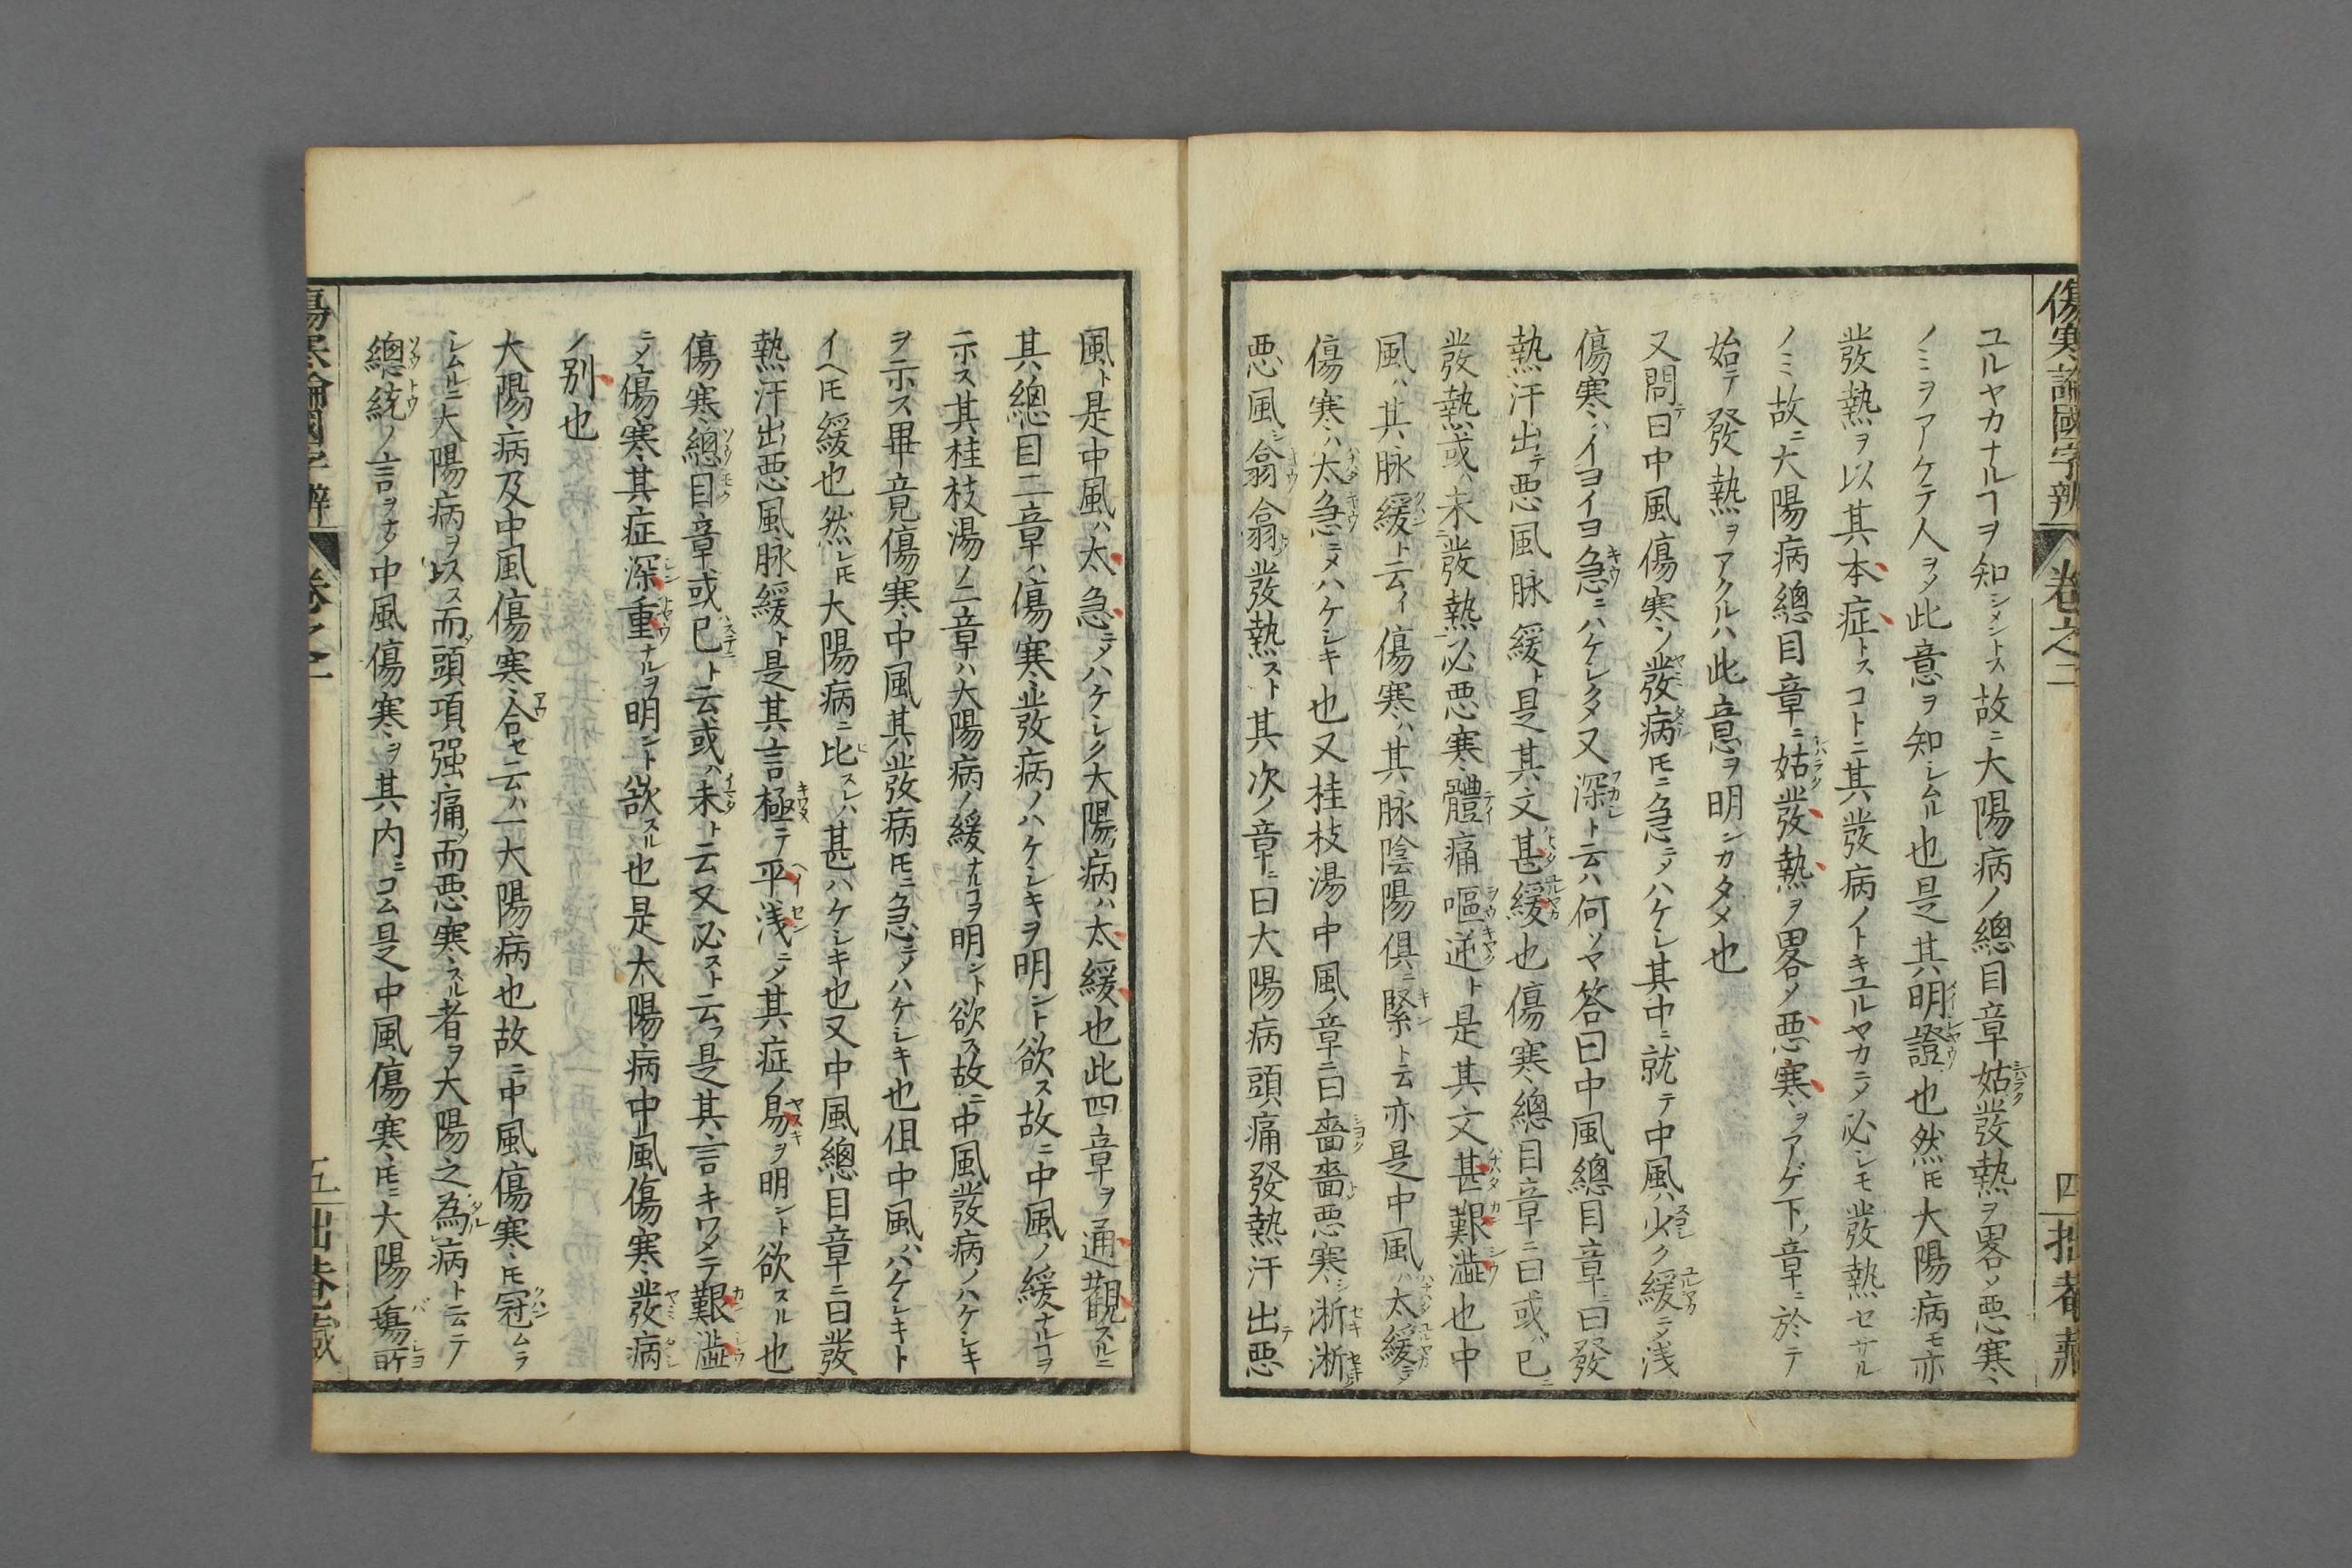 傷寒論國字辨 卷之二 四 拙菴藏
ユルヤカナルヿヲ知シメントス故ニ大陽病ノ總目章姑發熱ヲ畧ソ惡寒
ノミヲアケテ人ヲメ此意ヲ知シムル也是其明證也然㕝大陽病モ亦
發熱ヲ以其本症トスコトニ其發病ノトキユルヤカニメ必シモ發熱セサル
ノミ故ニ大陽病總目章ニ姑發熱ヲ畧ノ惡寒ヲアゲ下ノ章ニ於テ
始テ發熱ヲアクルハ此意ヲ明ンカタメ也
又問テ曰中風傷寒ノ發病㕝ニ急ニメハケシ其中ニ就テ中風ハ少ク緩ニメ浅
傷寒ハイヨイヨ急ニハケシクメ又深ト云ハ何ソヤ答曰中風總目章ニ曰發
熱汗出テ惡風脉緩ト是其文甚緩也傷寒總目章ニ曰或ハ已ニ
發熱或ハ未ニ發熱必惡寒體痛嘔逆ト是其文甚艱澁也中
風ハ其脉緩ト云イ傷寒ハ其脉陰陽俱ニ緊ト云亦是中風ハ太緩ニメ
傷寒ハ太急ニメハケシキ也又桂枝湯中風ノ章ニ曰嗇嗇惡寒シ淅淅
惡風シ翕翕發熱スト其次ノ章ニ曰大陽病頭痛發熱汗出テ惡
風ト是中風ハ太急ニメハケシク大陽病ハ太緩也此四章ヲ通觀スルニ
其總目二章ハ傷寒發病ノハケシキヲ明ント欲ス故ニ中風ノ緩ナルヿヲ
ニホス其桂枝湯ノ二章ハ大陽病ノ緩ナルヿヲ明ント欲ス故ニ中風發病ノハケシキ
ヲ示ス畢竟傷寒中風其發病㕝ニ急ニメハケシキ也但中風ハハケシキト
イヘ㕝緩也然レ㕝大陽病ニ比スレハ甚ハケシキ也又中風總目章ニ曰發
熱汗出惡風脉緩ト是其言極テ平浅ニメ其症ノ易ヲ明ント欲スル也
傷寒總目章或ハ已ト云或ハ未ト云又必スト云フ是其言キワメテ艱澁
ニメ傷寒其症深重ナルヲ明ント欲スル也是大陽病中風傷寒發病
ノ別也
大陽病及中風傷寒合セ云ハ一大陽病也故ニ中風傷寒㕝冠ムラ
シムルニ大陽病ヲ以ス而頭項强痛而惡寒スル者ヲ大陽之為病ト云テ
總統ノ言ヲナメ中風傷寒ヲ其内ニコム是中風傷寒㕝ニ大陽ノ塲所
傷寒論國字辨 卷之二 五 拙菴藏